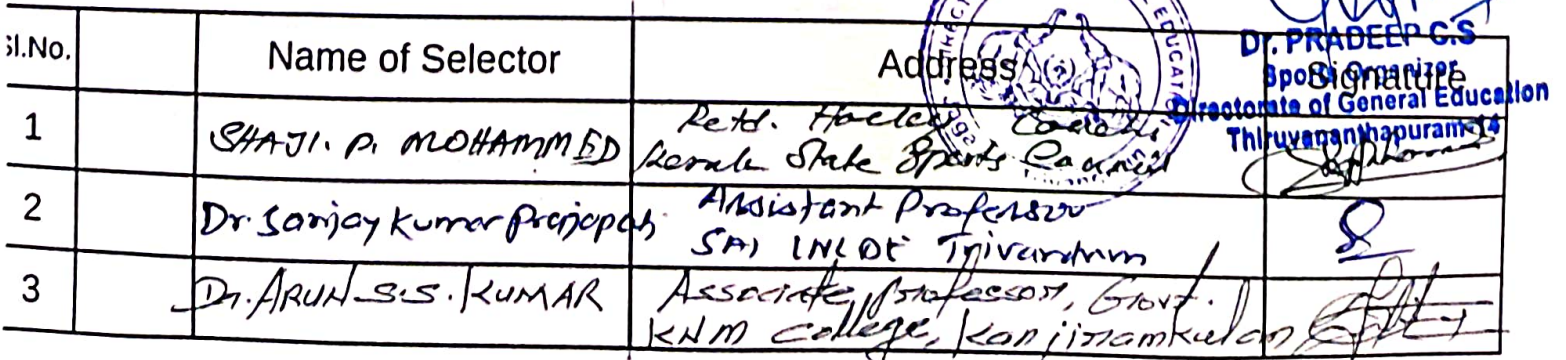 Dr. PRADEEP C.S
Sports Organizer
Directorate of General Education
Thiruvananthapuram-14
Sl.No. Name of Selector Address Signature
1 SHAJI. P. MOHAMMED Retd. Hockey Coach
Kerala State Sports Council
2 Dr. Sanjay Kumar Prajapati Assistant Professor
SAI LNCPE Trivandrum
3 Dr. ARUN S.S. KUMAR Associate Professor, Govt.
KNM College, Kanjiramkulam